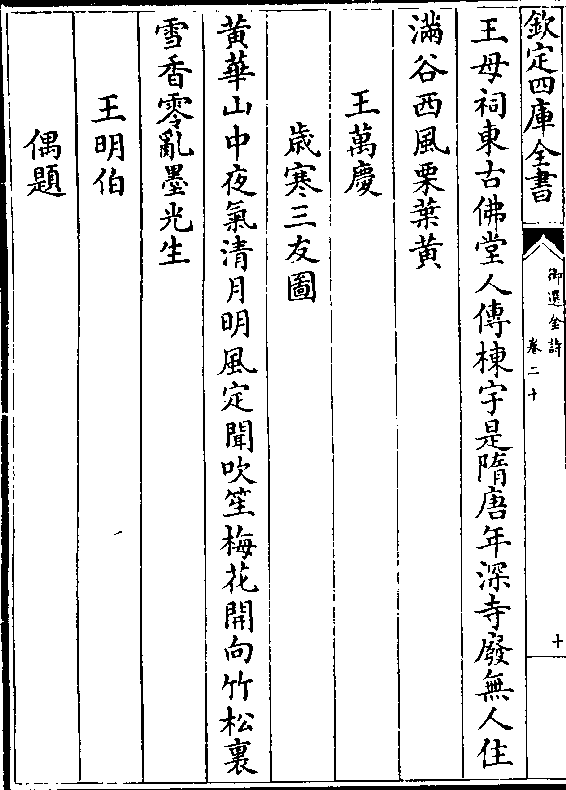 欽定四庫全書
御選金詩
卷二十
十
王母祠東古佛堂人傳棟宇是隋唐年深寺廢無人住
滿谷西風栗葉黄
王萬慶
歲寒三友圖
黄華山中夜氣清月明風定聞吹笙梅花開向竹松裏
雪香零亂墨光生
王明伯
偶題